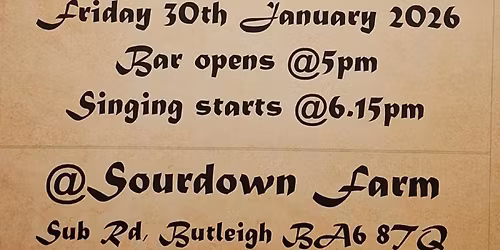 Friday 30th January 2026
Bar opens @5pm
Singing starts @6.15pm
@Sourdown Farm
Sub Rd, Butleigh BA6 8TQ